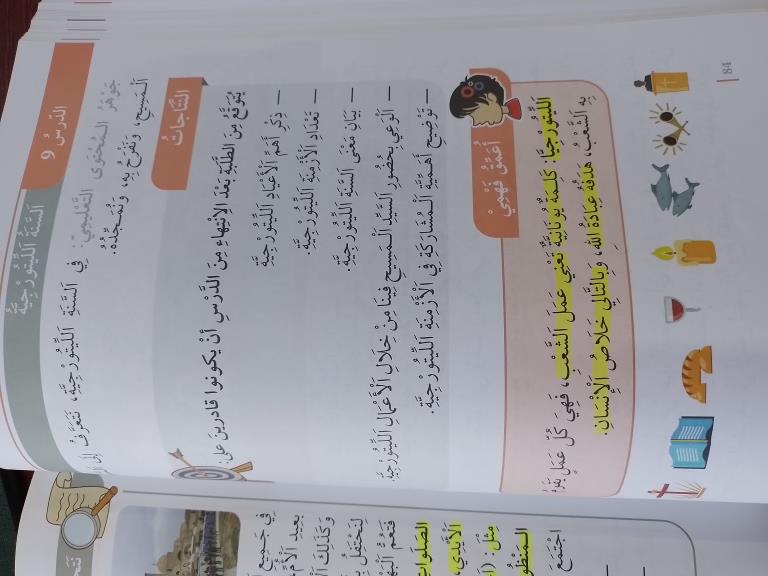 الدَّرسُ 9
السَّنَةُ اللِّيتُورْجِيَّةُ
جَوْهَرُ المُحْتَوى التَّعْلِيمِيِّ: فِي السَّنَةِ اللِّيتُورْجِيَّةِ، نَتَعَرَّفُ إِلَى
الْمَسِيحِ، وَنَفْرَحُ بِهِ، وَنُمَجِّدُهُ.
النَّتَاجَاتُ
يُتَوَقَّعُ مِنَ الطَّلَبَةِ بَعْدَ الِانْتِهَاءِ مِنَ الدَّرْسِ أَنْ يَكُونُوا قَادِرِينَ عَلَى:
– ذِكْرِ أَهَمِّ الْأَعْيَادِ اللِّيتُورْجِيَّةِ
– تَعْدَادِ الْأَزْمِنَةِ اللِّيتُورْجِيَّةِ.
– بَيَانِ مَعْنَى السَّنَةِ اللِّيتُورْجِيَّةِ.
– الْوَعْيِ بِحُضُورِ السَّيِّدِ الْمَسِيحِ فِينَا مِنْ خِلَالِ الْأَعْمَالِ اللِّيتُورْجِيَّةِ.
– تَوْضِيحِ أَهَمِّيَّةِ الْمُشَارَكَةِ فِي الْأَزْمِنَةِ اللِّيتُورْجِيَّةِ.
أُعَمِّقُ فَهْمِي
اللِّيتُورْجِيَّا: كَلِمَةٌ يُونَانِيَّةٌ تَعْنِي عَمَلَ الشَّعْبِ، فَهِيَ كُلُّ عَمَلٍ يَقُومُ
بِهِ الشَّعْبُ، هَدَفُهُ عِبَادَةُ اللهِ، وَبِالتَّالِي خَلَاصُ الْإِنْسَانِ.
84
فِي جَمِيعِ
بِعِيدِ
وَكَذَلِكَ
لِنَحْتَفِلَ
الصَّلَوَاتِ
الْأَيْدِي،
مِثْلَ:
اجْتَمَعَ